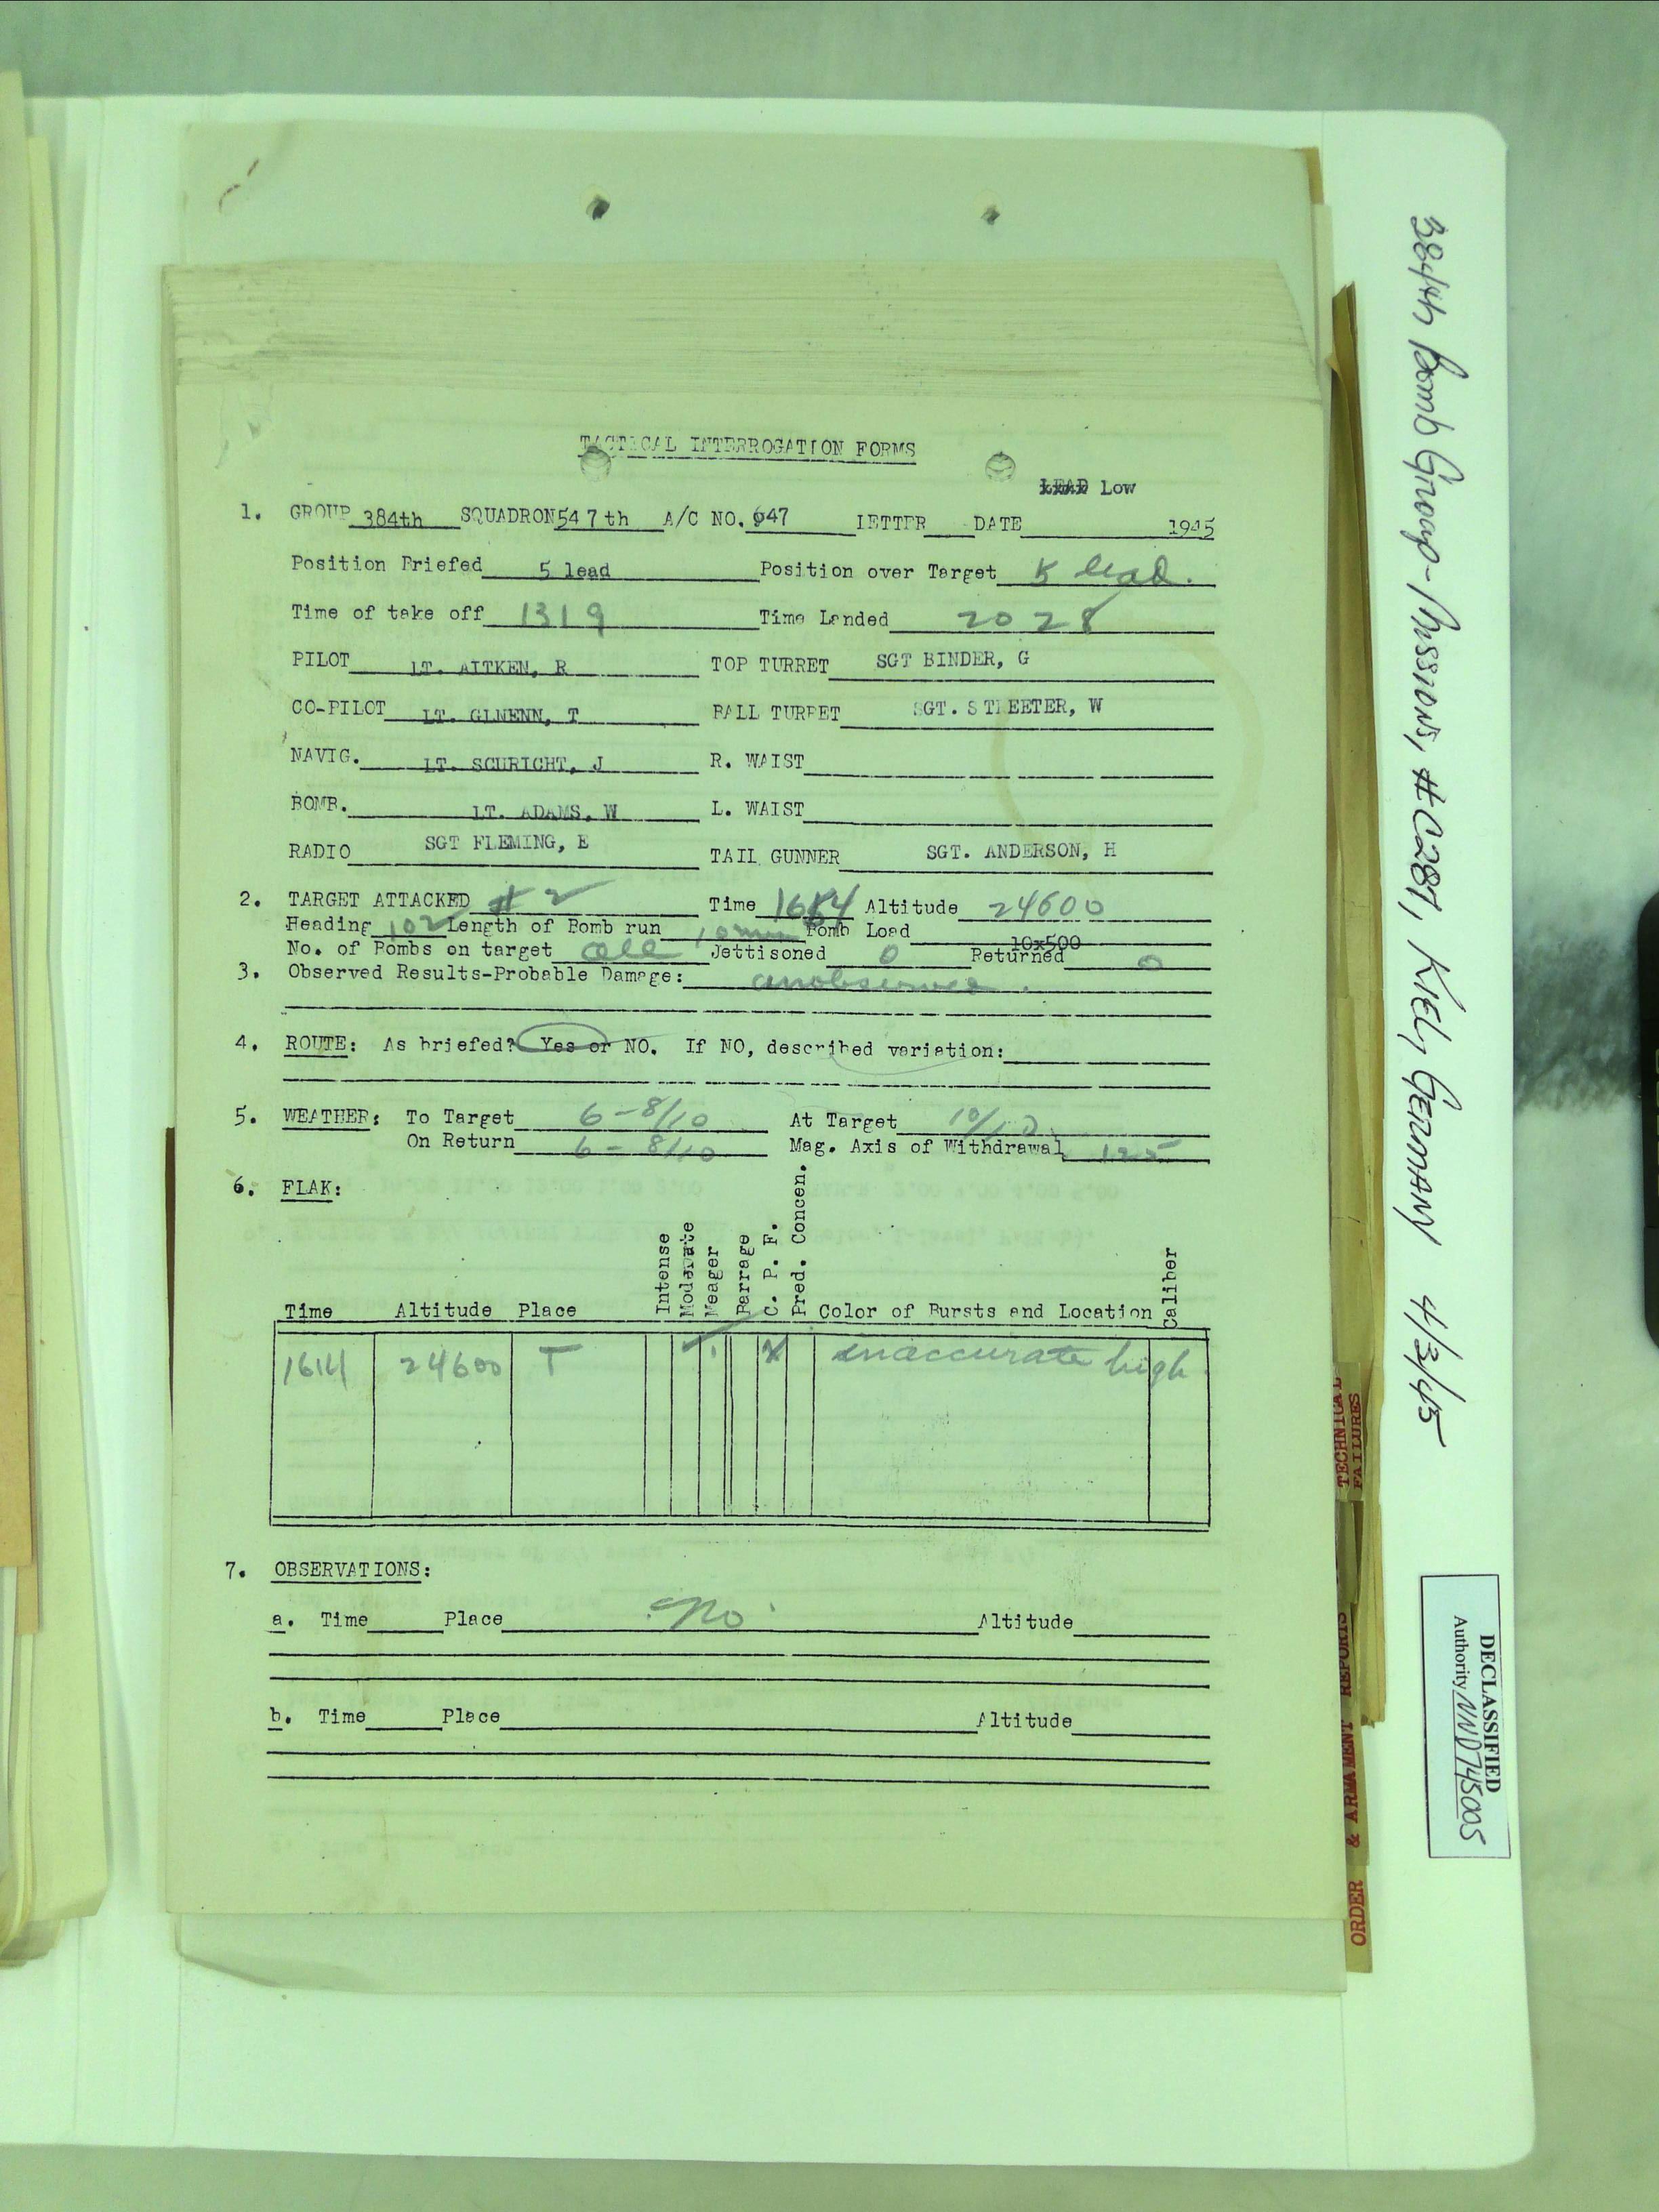 TACTICAL INTERROGATION FORMS
LEAD Low
1. GROUP 384th SQUADRON 547th A/C NO. 647 LETTER DATE 1945
Position Briefed 5 lead Position over Target 5 lead.
Time of take off 1319 Time Landed 2028
PILOT LT. AITKEN, R TOP TURRET SGT BINDER, G
CO-PILOT LT. GLNENN, T BALL TURRET SGT. STREETER, W
NAVIG. LT. SCURICHT, J R. WAIST
BOMB. LT. ADAMS, W L. WAIST
RADIO SGT FLEMING, E TAIL GUNNER SGT. ANDERSON, H
2. TARGET ATTACKED # 2 Time Altitude 24600
Heading 102 Length of Bomb run 10 min Bomb Load 10x500
No. of Bombs on target all Jettisoned 0 Returned 0
3. Observed Results-Probable Damage: unobserved.
4. ROUTE: As briefed? Yes or NO. If NO, described variation:
5. WEATHER: To Target 6-8/10 At Target 10/10
On Return 6-8/10 Mag. Axis of Withdrawal 125
6. FLAK:
Time Altitude Place Intense Moderate Meager Barrage C. P. F. Pred. Concen. Color of Bursts and Location Caliber
1614 24600 T X inaccurate high
7. OBSERVATIONS:
a. Time Place No Altitude
b. Time Place Altitude
384th Bomb Group - Missions, #C287, KIEL, GERMANY 4/3/45
DECLASSIFIED
Authority NND745005
TECHNICAL
FAILURES
ORDER & ARMAMENT REPORTS